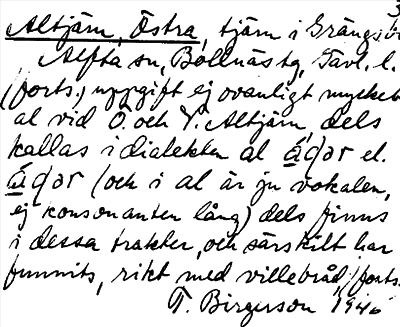 3
Altjärn, Östra, tjärn i Grängsbo
Alfta sn, Bollnäs tg, Gävl. l.
(forts.) uppgift ej ovanligt mycket
al vid Ö. och V. Altjärn, dels
kallas i dialekten al ågər el.
ågər (och i al är ju vokalen,
ej konsonanten lång) dels finns
i dessa trakter, och särskilt har
funnits, rikt med villebråd, (forts.
T. Birgerson 1946